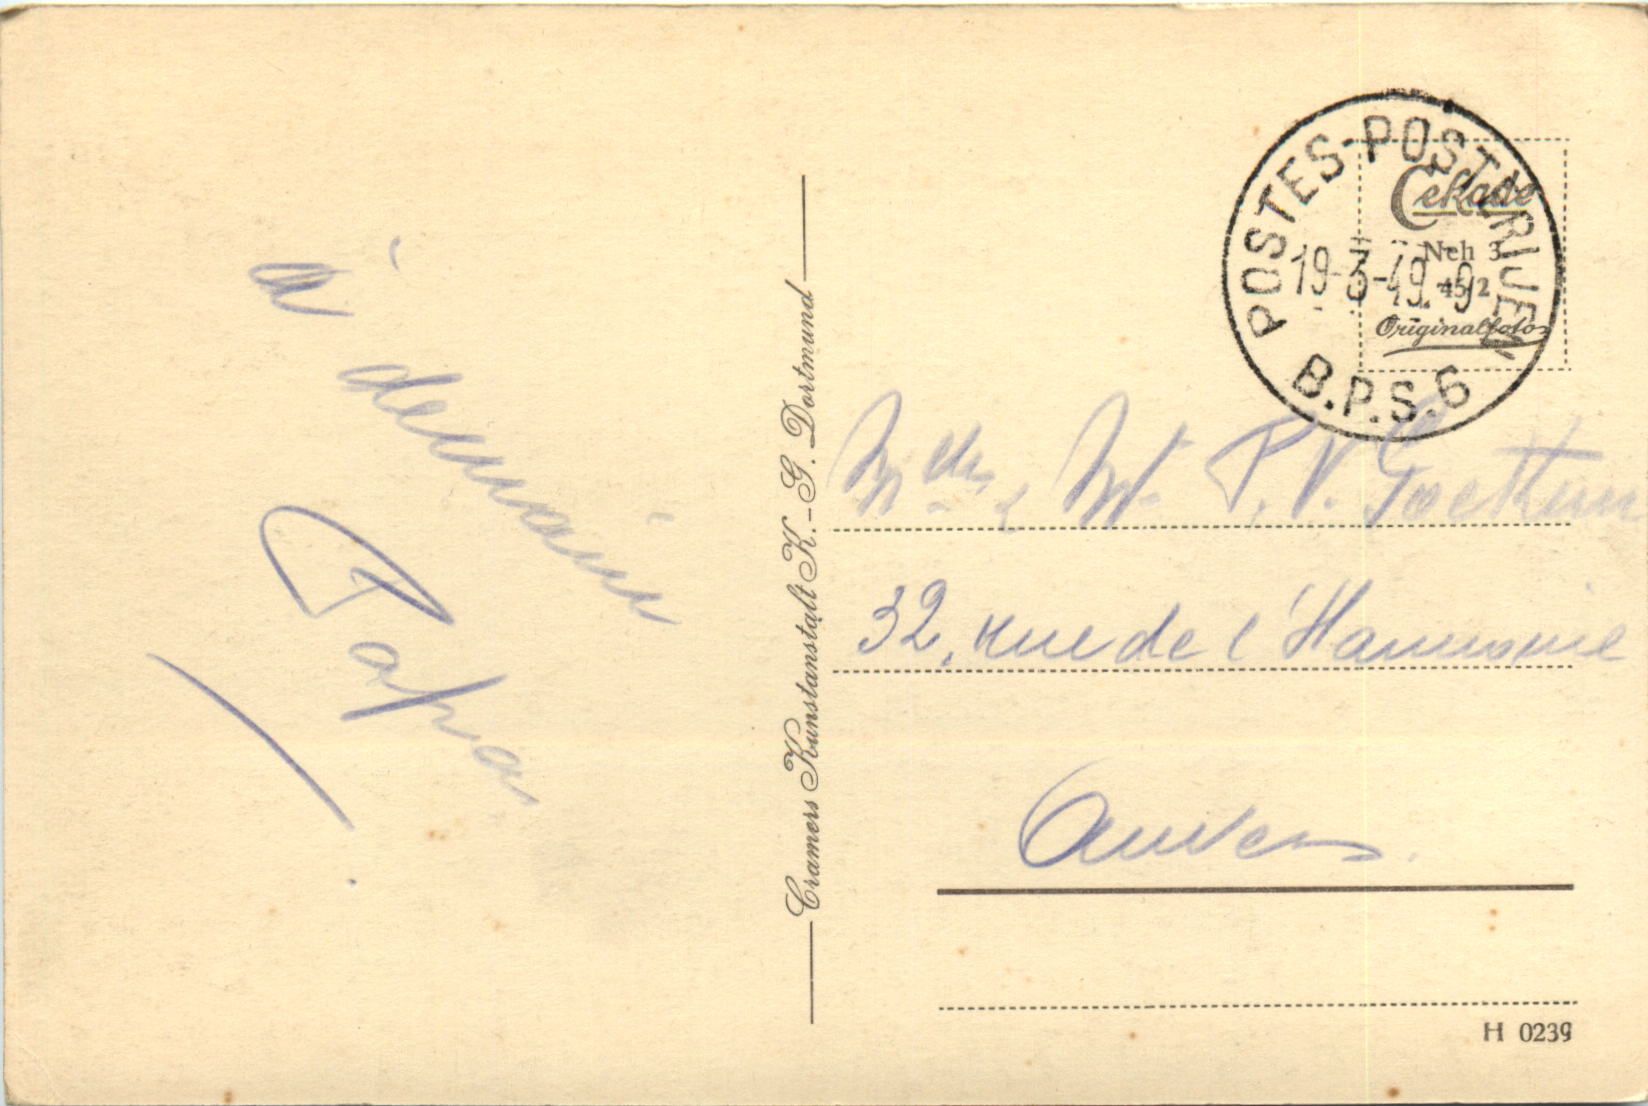 à demain
Papa
Cramers Kunstanstalt K.-G. Dortmund
POSTES-POSTERIJEN
19-3-49.-9
B.P.S.6
Cekade
Neh 3
45/2
Originalfoto
P. V.
32, rue de l'Harmonie
Anvers.
H 0239